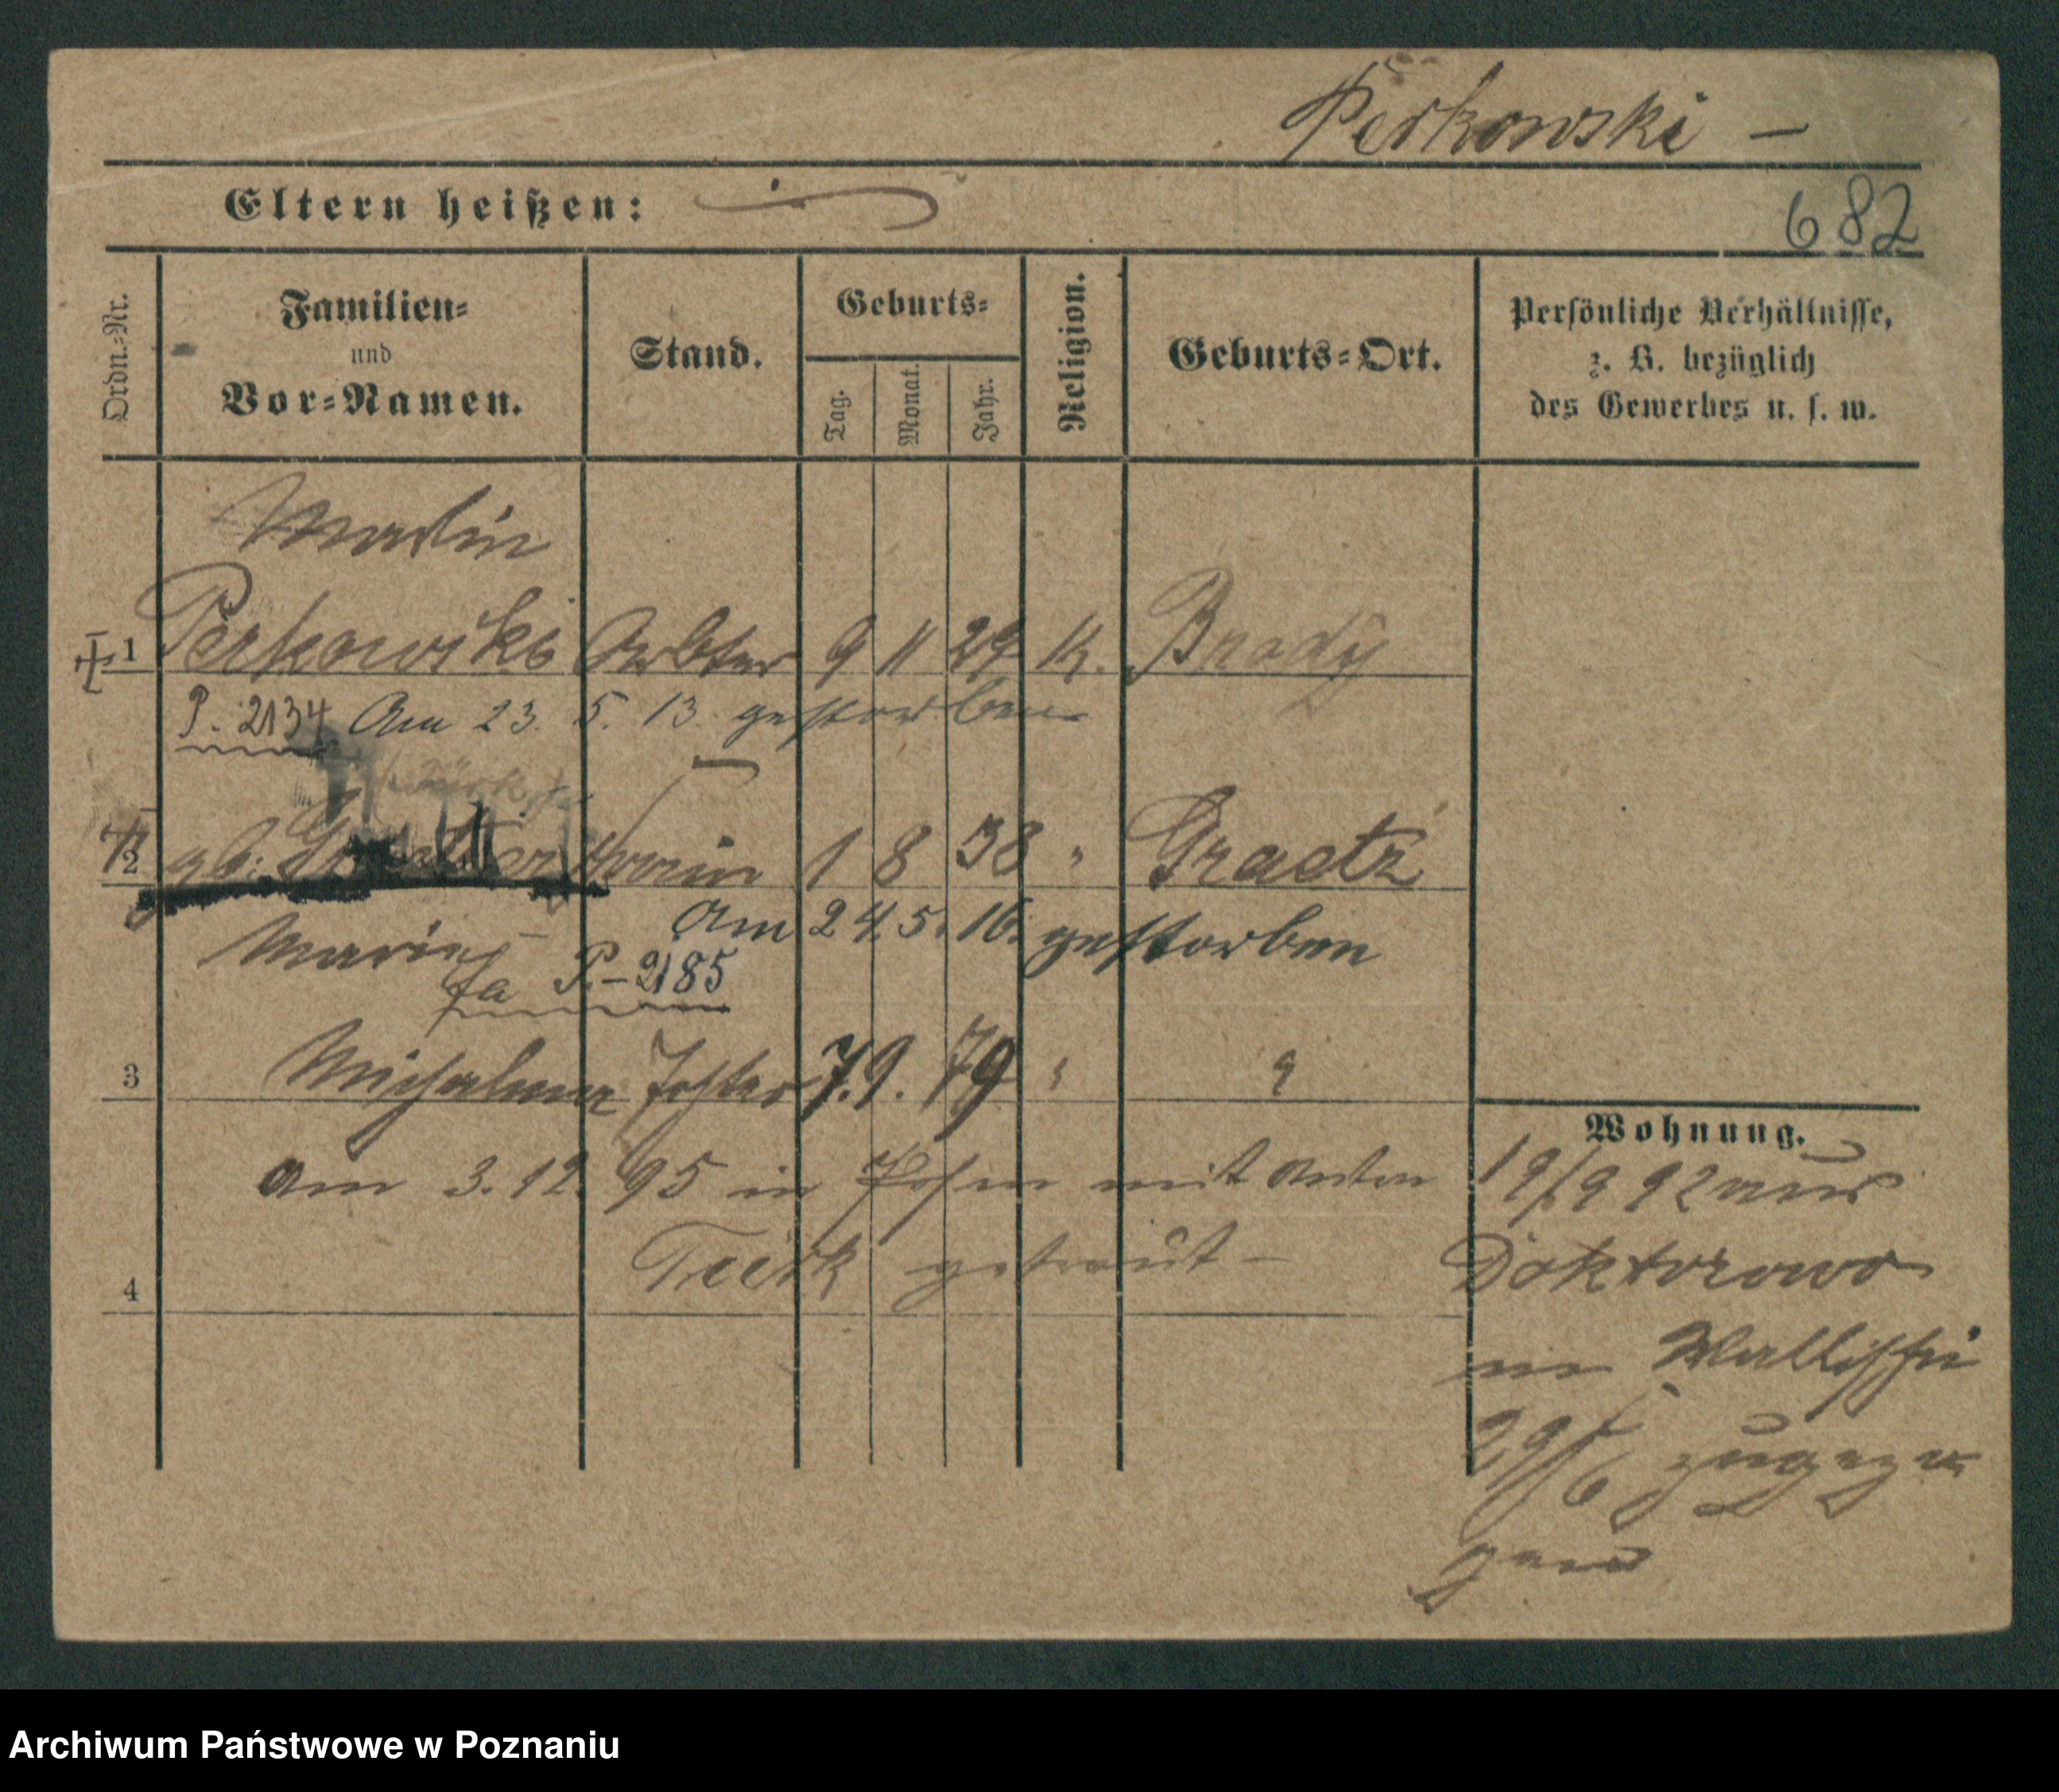 Perkowski –
Eltern heißen:
682
Ordn.-Nr.
Familien-
und
Vor-Namen.
Stand.
Geburts-
Tag.
Monat.
Jahr.
Religion.
Geburts-Ort.
Persönliche Verhältnisse,
z. B. bezüglich
des Gewerbes u. s. w.
Martin
1 Perkowski Arbter 9 11 29 K. Brody
P. 2134 Am 23. 5. 13 gestorben
2 gb: 1 8 38 " Graetz
Am 24. 5. 16. gestorben
Marie
P-2185
3 Michalina Tochter 7. 9. 79 "
Am 3. 12. 95 in Posen mit Anton
getraut –
4
Wohnung.
19/9 92 aus
Doktorowo
Wallischei
29/6 zugezo
gen
Archiwum Państwowe w Poznaniu